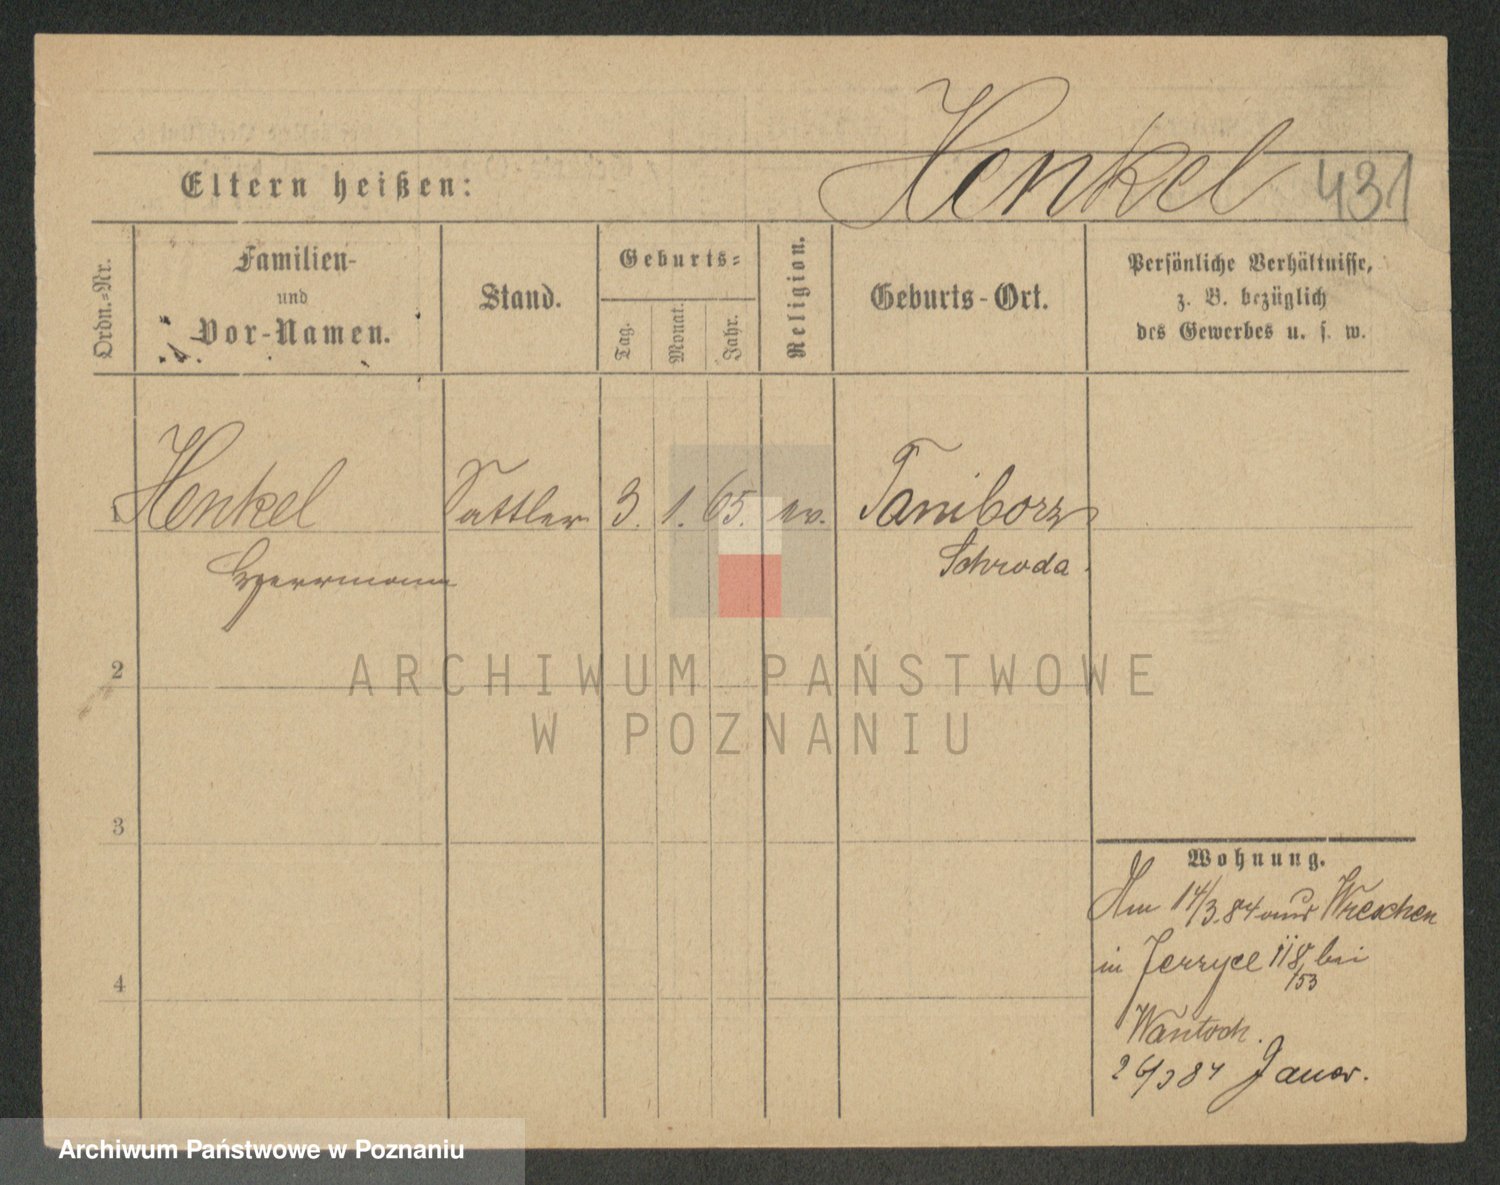 Henkel 431
Eltern heißen:
Ordn.-Nr.
Familien-
und
Vor-Namen.
Stand.
Geburts-
Tag.
Monat.
Jahr.
Religion.
Geburts-Ort.
Persönliche Verhältnisse,
z. B. bezüglich
des Gewerbes u. s. w.
1 Henkel Sattler 3. 1. 65. ev. Taniborz
Herrmann Schroda.
ARCHIWUM PAŃSTWOWE
W POZNANIU
2
3
4
Wohnung.
Am 14/3.84 aus Wreschen
in Jerzyce 118/153 bei
Wantoch.
26/3 84
Archiwum Państwowe w Poznaniu